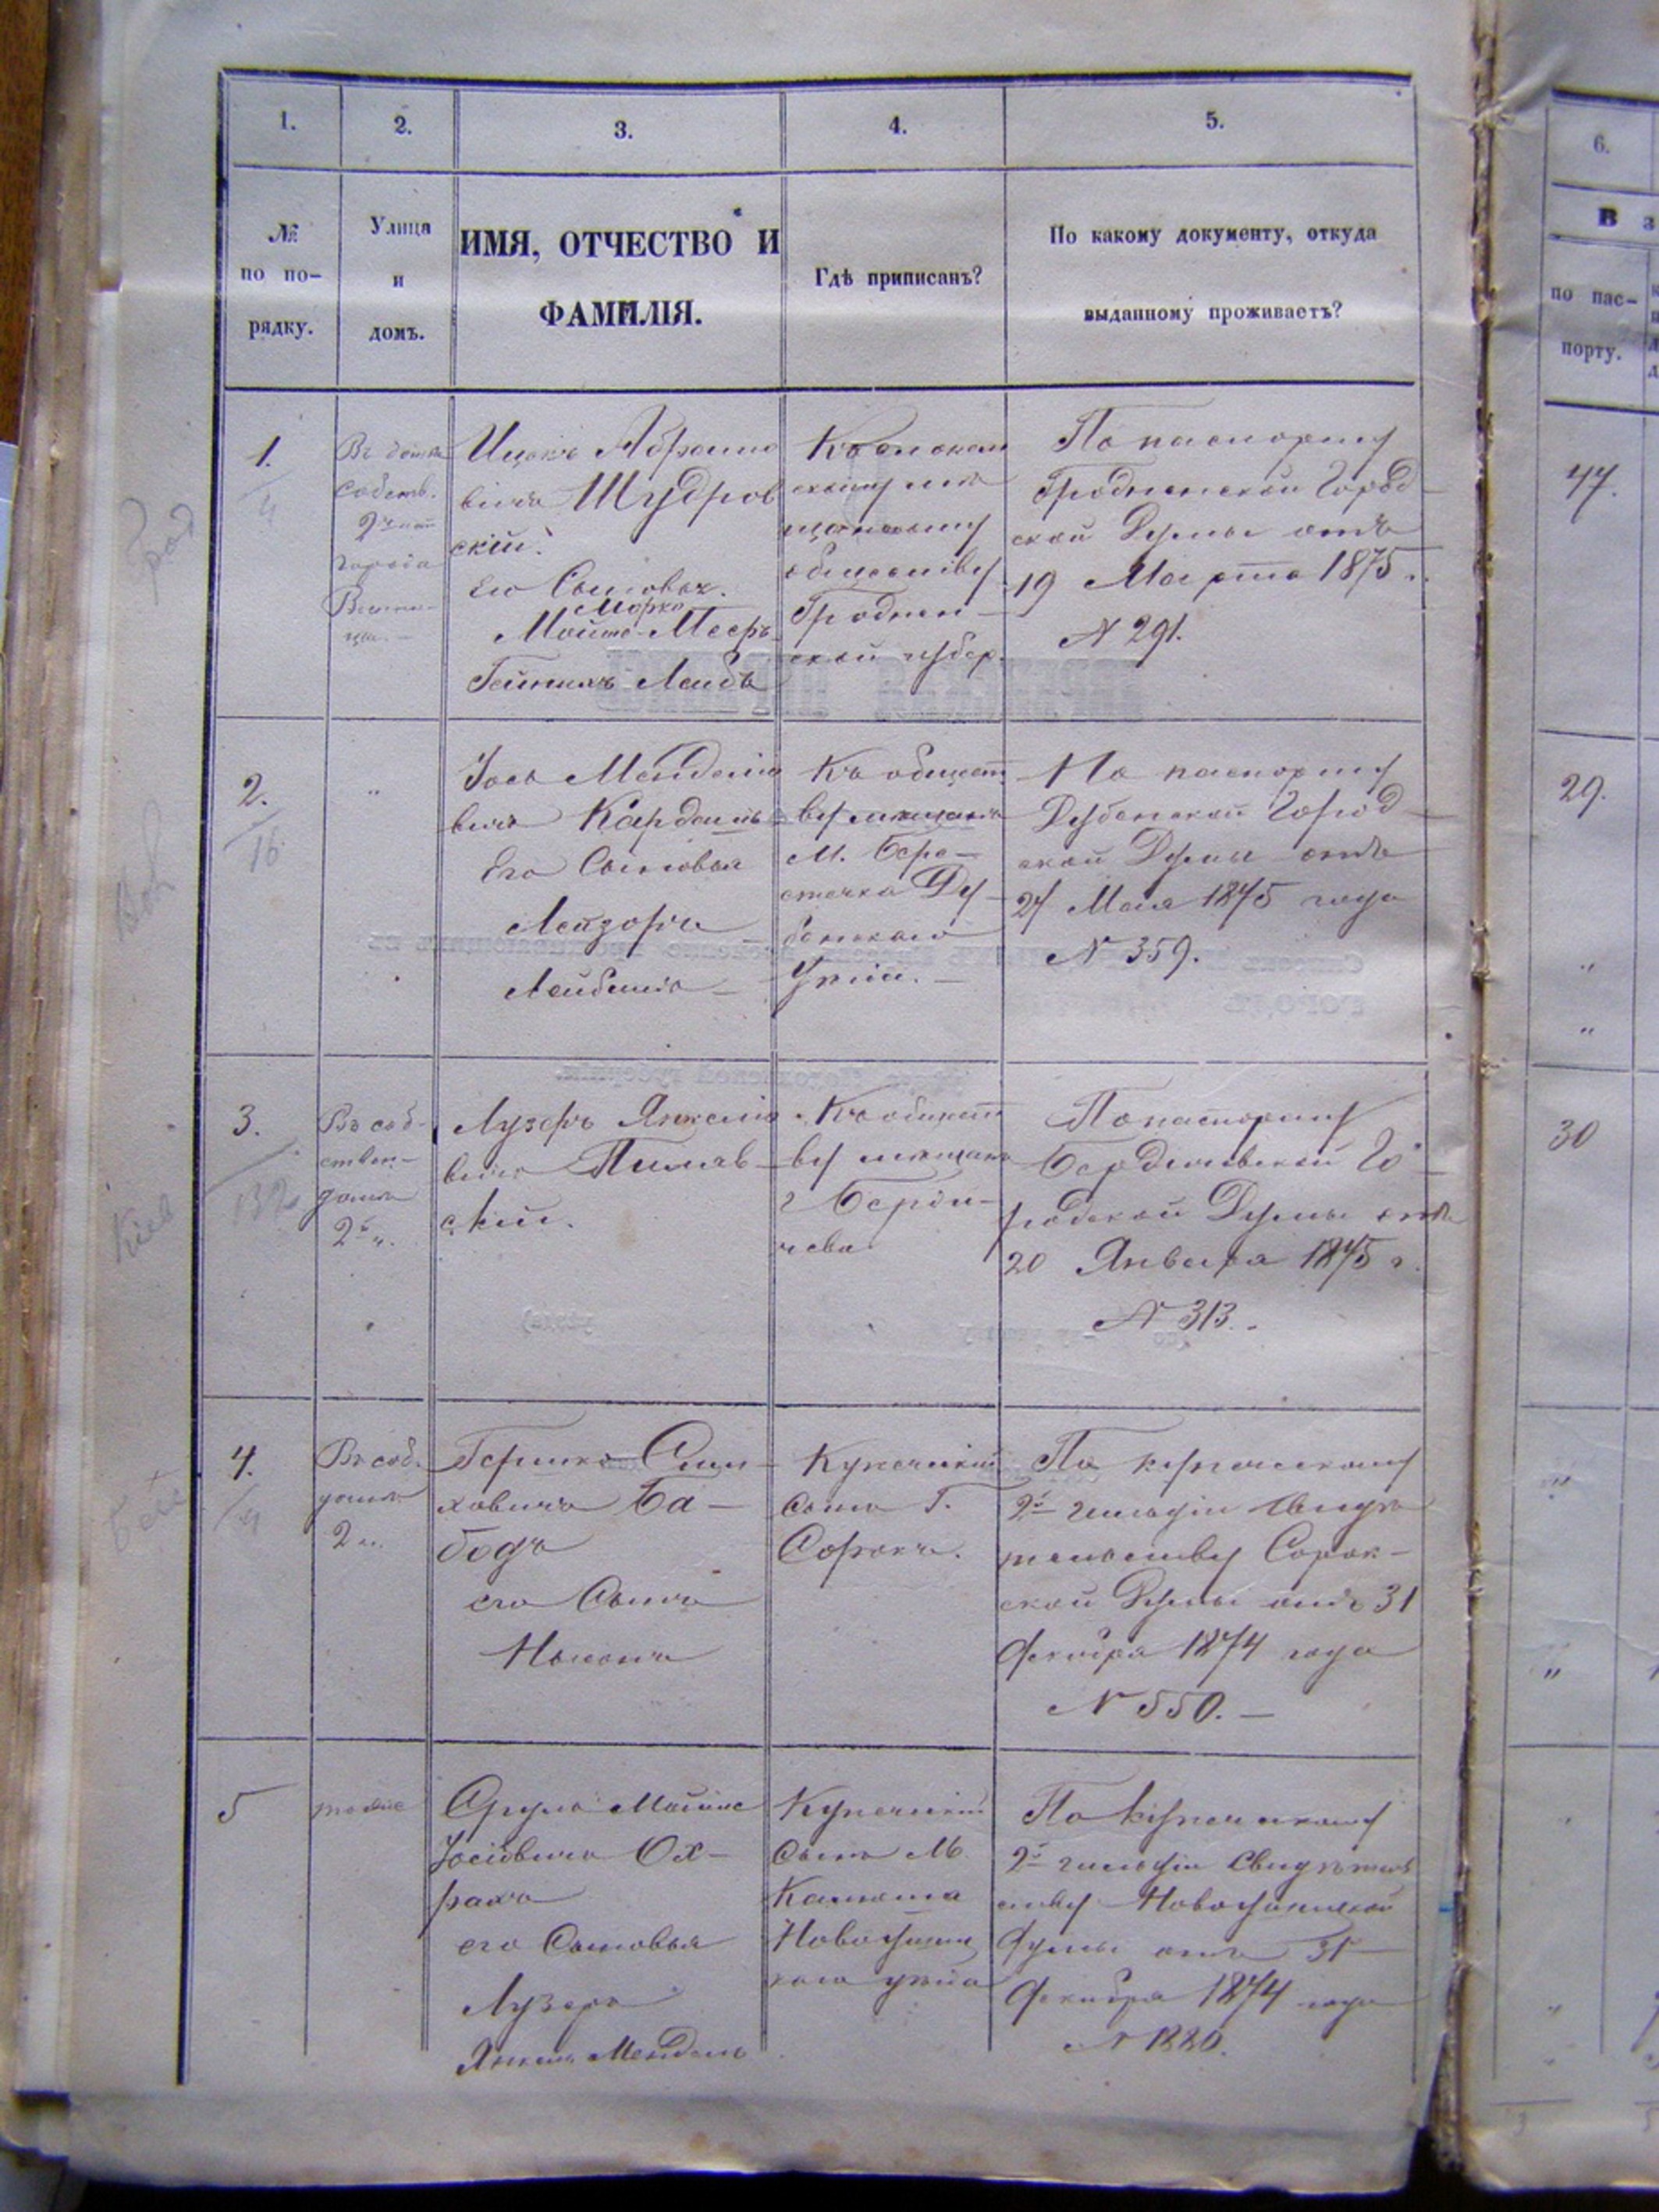 1.
2.
3.
4.
5.
6.
№
по по-
рядку.
Улица
и
домъ.
ИМЯ, ОТЧЕСТВО И
ФАМИЛІЯ.
Гдѣ приписанъ?
По какому документу, откуда
выданному проживаетъ?
В
по пас-
порту.
1.
4
Въ домѣ
собств.
города
Ицокъ Абрамо
вичъ Шудров
скій.
его Сыновья.
Морко
Мойше-Мееръ
Лейба
щанскому
обществу
Гроднен-
ской губер.
По паспорту
Гродненской Город-
ской Думы отъ
19 Марта 1875 г.
№ 291.
47.
2.
16
"
Іось Менделіо
вичъ Кардашъ
Его Сыновья
Лейзоръ
Къ общест
ву мѣщанъ
м. Бере-
стечка Ду-
бенскаго
Уѣзда. -
По паспорту
Дубенской Город-
ской Думы отъ
27 Мая 1875 года
№ 359.
29.
"
"
3.
132
Въ соб-
ствен-
домѣ
2й ч.
Лузеръ Янкеліо
вичъ Пиляв-
скій.
Къ общест
ву мѣщанъ
г. Берди-
чева
По паспорту
Бердичевской Го-
родской Думы отъ
20 Января 1875 г.
№ 313.
30
4.
4
Въ соб.
домѣ
2 ч.
Гершко Сим-
ховичъ Ба-
бадъ
его Сынъ
Купеческій
сынъ г.
Сорокъ.
По купеческому
2й гильдіи свидѣ
тельству Сорок-
ской Думы отъ 31
Декабря 1874 года
№ 550. -
"
"
5
тоже
Срулъ Мойше
Іосіовичъ Ох-
ракъ
его Сыновья
Лузеръ
Янкель Мендель
Купеческій
Сынъ М.
Новоушиц
каго уѣзда
По купеческому
2й гильдіи Свидѣтель
ству Новоушицкой
Думы отъ 31
Декабря 1874 года
№ 1220.
Кіев